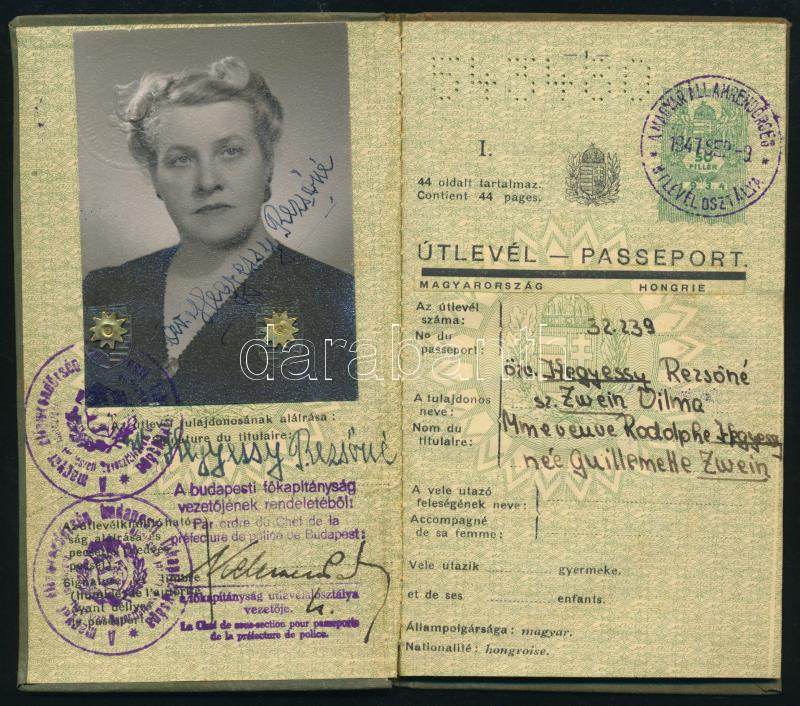 özv. Hegyessy Rezsőné
tulajdonosának aláirása :
ture du titulaire:
Hegyessy Rezsőné
A budapesti főkapitányság
vezetőjének rendeletéből:
Par ordre du Chef de la
préfecture de police de Budapest:
A főkapitányság útlevélalosztálya
vezetője.
Le Chef de sous-section pour passeports
de la préfecture de police.
543460
A MAGYAR ÁLLAMRENDŐRSÉG
1947 SEP -9
ÚTLEVÉL OSZTÁLYA
50
FILLÉR
1934
I.
44 oldalt tartalmaz.
Contient 44 pages.
ÚTLEVÉL — PASSEPORT.
MAGYARORSZÁG HONGRIE
Az útlevél
száma:
32.239
No du
passeport:
özv. Hegyessy Rezsőné
sz. Zwein Vilma
A tulajdonos
neve:
Nom du
titulaire:
Mme veuve Rodolphe Hegyessy
née Guillemette Zwein
A vele utazó
feleségének neve:
Accompagné
de sa femme:
Vele utazik gyermeke.
et de ses enfants.
Állampolgársága : magyar.
Nationalité : hongroise.
darabanth